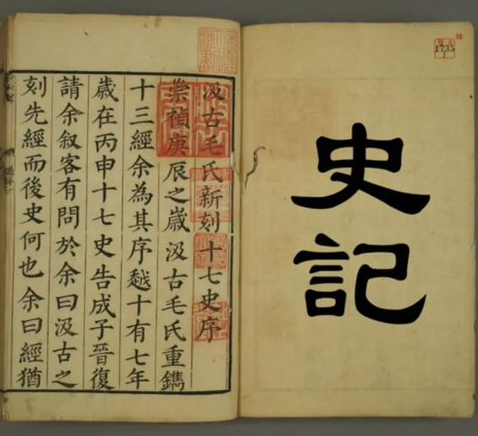 史記
1735
1
汲古毛氏新刻十七史序
崇禎庚辰之歲汲古毛氏重鐫
十三經余為其序越十有七年
歲在丙申十七史告成子晉復
請余叙客有問於余曰汲古之
刻先經而後史何也余曰經猶